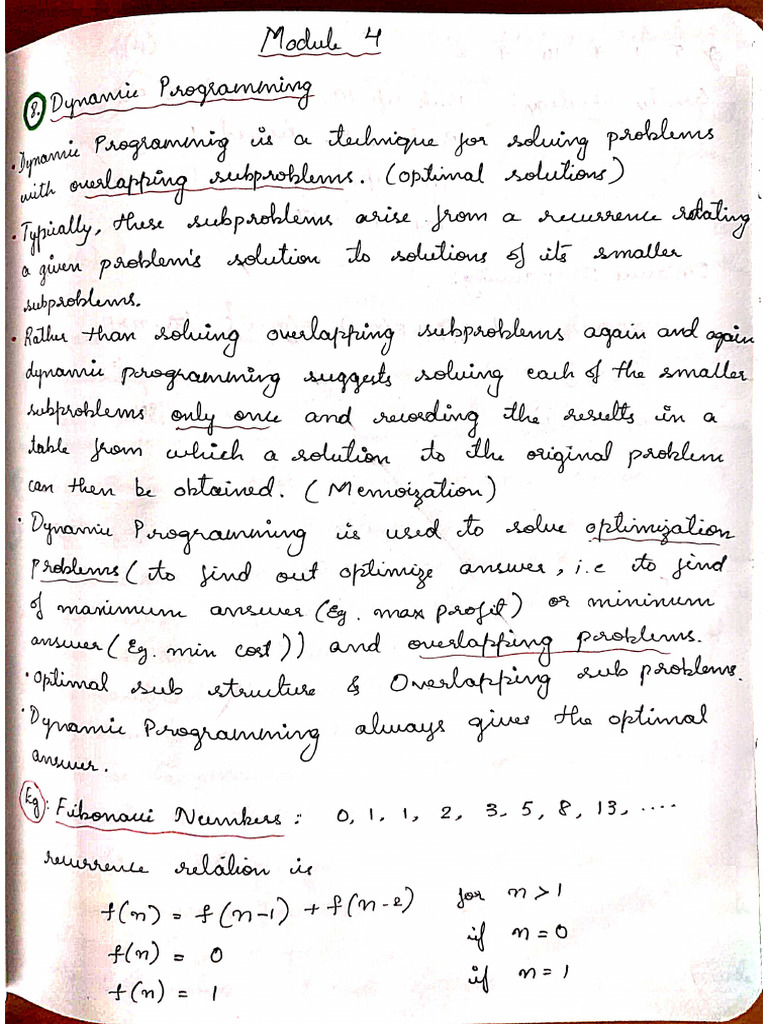 Module 4
8. Dynamic Programming
• Dynamic Programmig is a technique for solving problems
with overlapping subproblems. (optimal solutions)
• Typically, these subproblems arise from a recurrence rotating
a given problem's solution to solutions of its smaller
subproblems.
• Rather than solving overlapping subproblems again and again
dynamic programming suggests solving each of the smaller
subproblems only once and recording the results in a
table from which a solution to the original problem
can then be obtained. (Memoization)
• Dynamic Programming is used to solve optimization
problems (to find out optimize answer, i.e to find
of maximum answer (Eg. max profit) or mininum
answer (Eg. min cost)) and overlapping problems.
• optimal sub structure & Overlapping sub problems.
• Dynamic Programming always gives the optimal
answer.
Eg: Fibonacci Numbers : 0, 1, 1, 2, 3, 5, 8, 13, ....
recurrence relation is
f(n) = f(n-1) + f(n-2) for n > 1
f(n) = 0 if n = 0
f(n) = 1 if n = 1